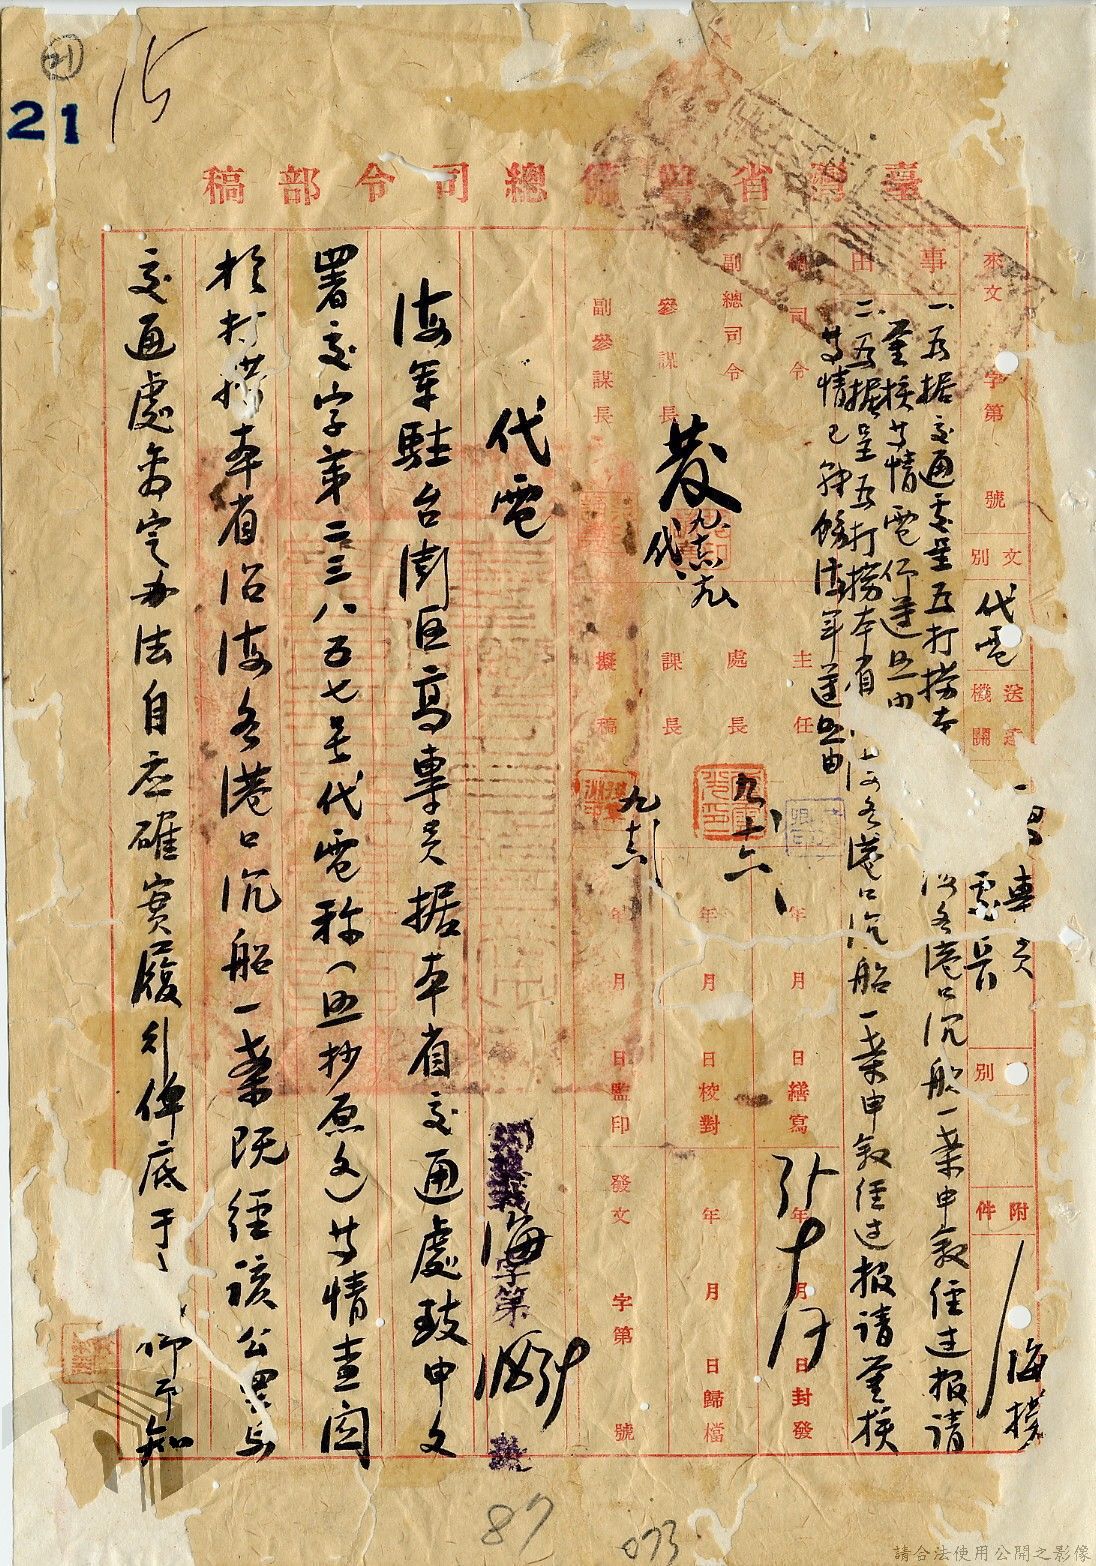 21
21
15
臺灣省警備總司令部稿
來文 字第 號
文別
代電
送達機關
專員
處長
別
附件
事由
一、為据交通處呈為打撈本
海各港口沉船一案申敘经过报请
鉴核等情電仰遵照由
二、為據呈為打撈本省沿海各港口沉船一案申敘经过报请鉴核
等情已转飭海军遵照由
總司令
副總司令
參謀長
副參謀長
發
主任
處長
課長
擬稿
九 十六
年 月 日繕寫
年 月 日校對
年 月 日監印
年 月 日封發
年 月 日歸檔
發文 字第 號
海
字第
代電
海军駐台澎区高專员据本省交通處致申文
署交字第二三八五七号代電称(照抄原文)等情查関
於打撈本省沿海各港口沉船一案既经該公署与
交通處商定办法自应確实履行俾底于 仰即知
87
073
請合法使用公開之影像